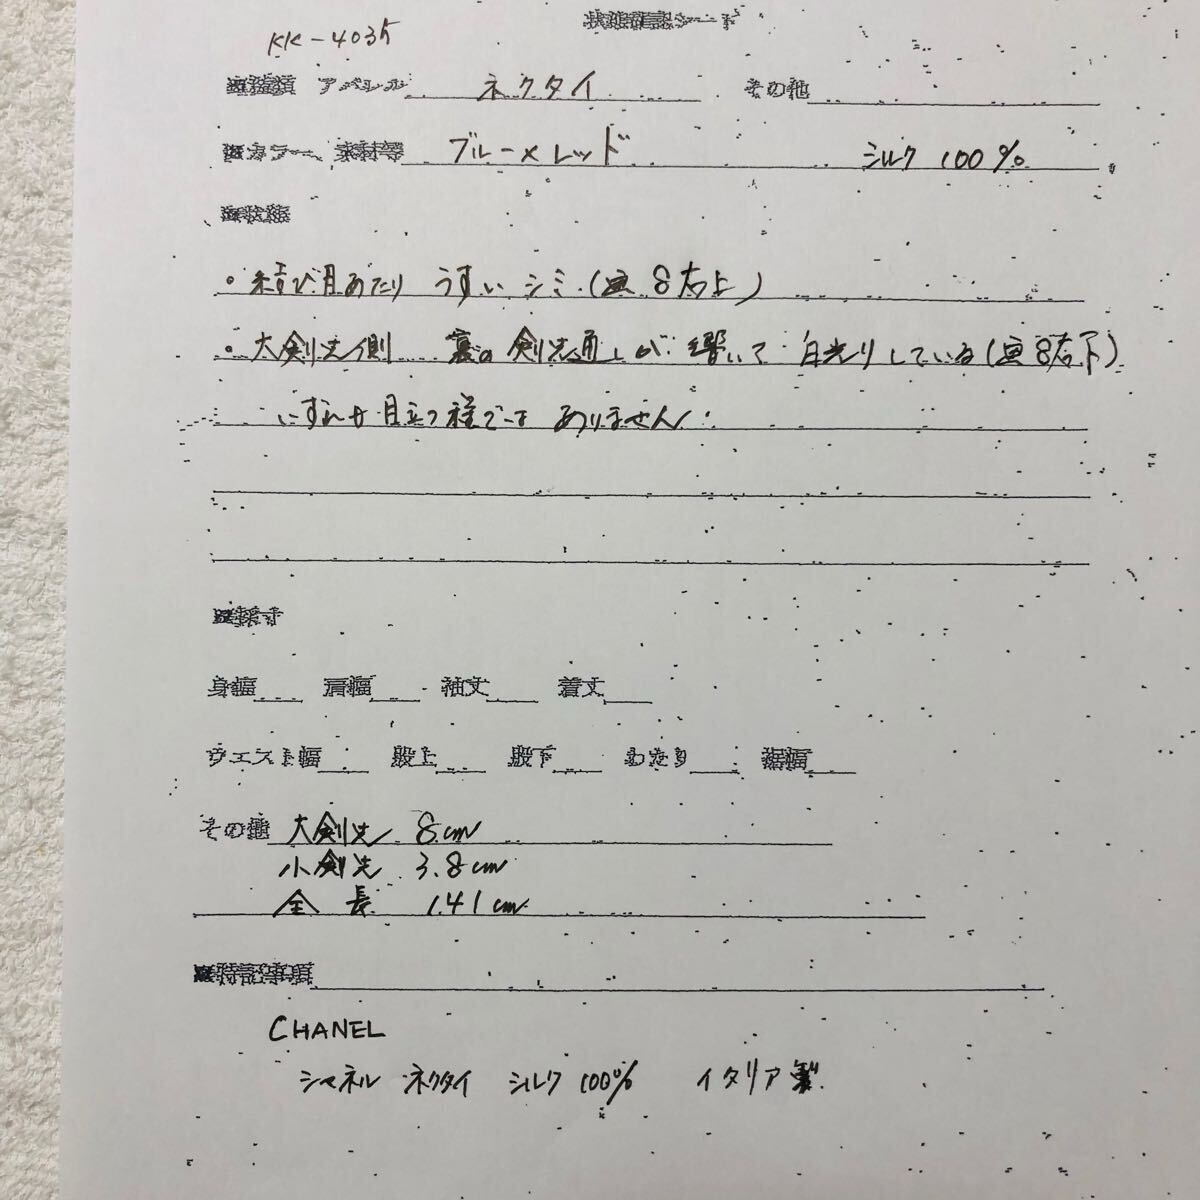 状態確認シート
KK-4035
■種類 アパレル ネクタイ その他
■カラー、素材等 ブルー×レッド シルク 100%
■状態
・結び目あたり うすいシミ(画8右上)
・大剣先側 裏の剣先通しが響いて白光りしている(画8右下)
いずれも目立つ程ではありません.
■採寸
身幅 肩幅 袖丈 着丈
ウエスト幅 股上 股下 わたり 裾幅
その他 大剣先 8cm
小剣先 3.8cm
全長 141cm
■特記事項
CHANEL
シャネル ネクタイ シルク100% イタリア製